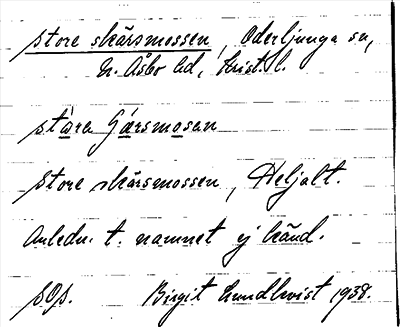 store skärsmossen, Oderljunga sn,
N. Åsbo hd, Krist. l.
ståra Gärsmosan
store skärsmossen, Heljalt.
Anledn. t. namnet ej känd.
SOS. Birgit Lundkvist 1938.